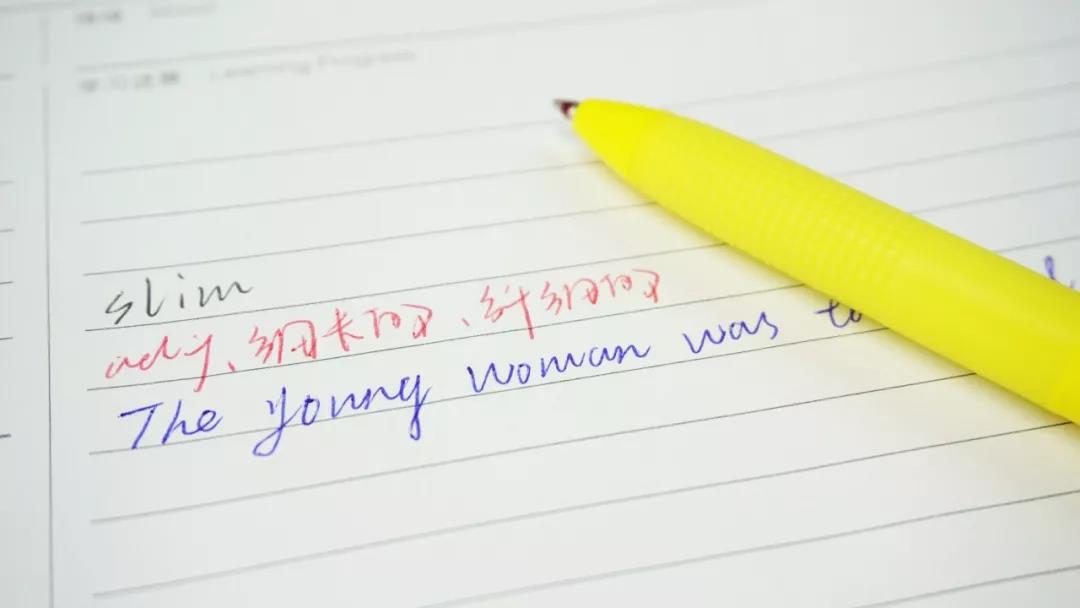 学习进展 Learning Progress
slim
adj、细长的、纤细的
The young woman was